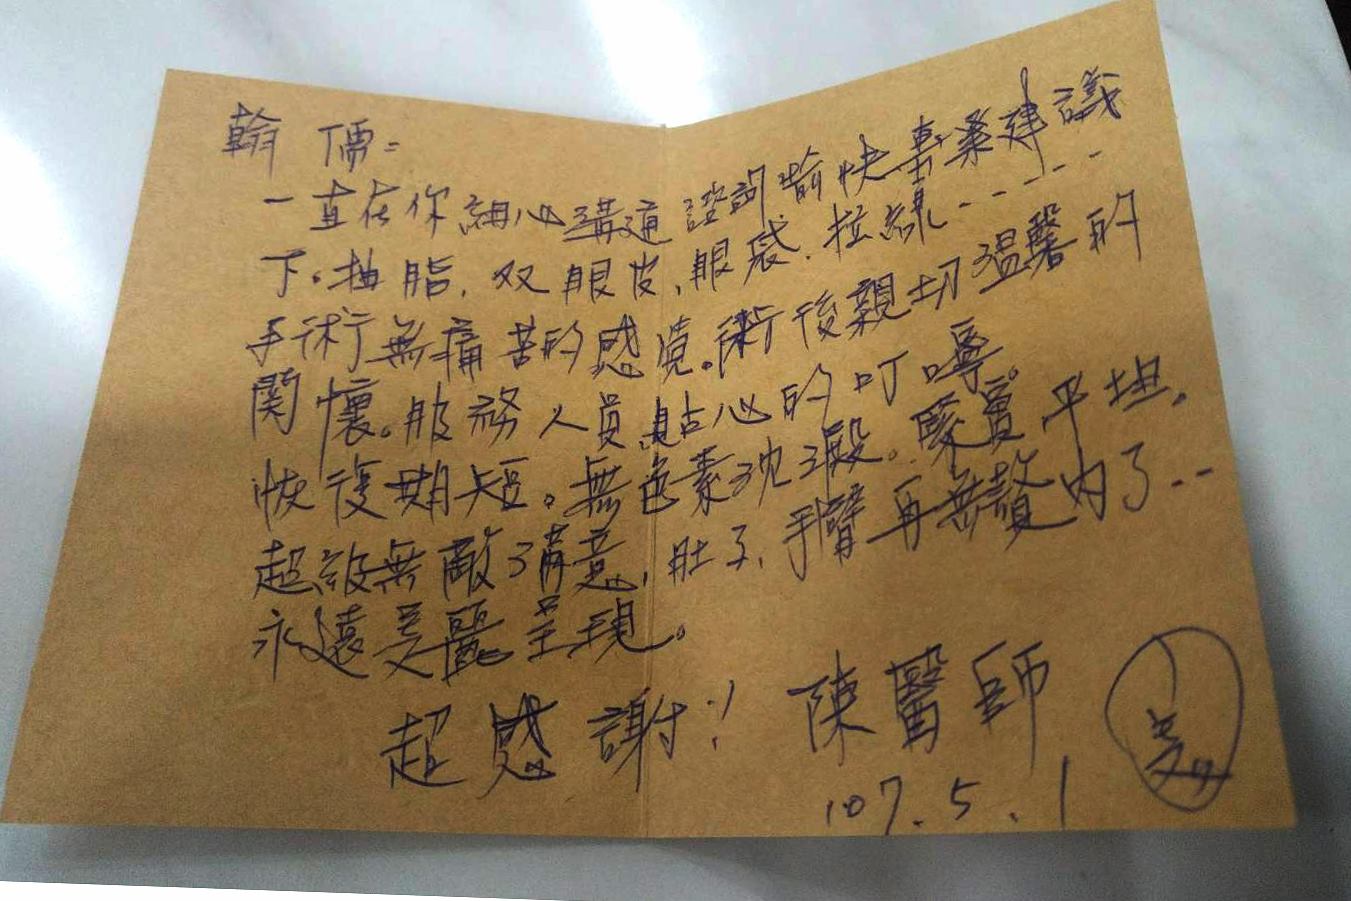 翰儒:
一直在你細心溝通 諮詢愉快專業建議
下。抽脂, 双眼皮, 眼袋, 拉線-----
手術無痛苦的感覺。術後親切溫馨的
關懷。服務人員貼心的叮嚀。
恢復期短。無色素沈澱。雙頰平坦。
超級無敵滿意, 肚子, 手臂再無贅肉了--
永遠美麗呈現。
超感謝! 陳醫師
107.5.1